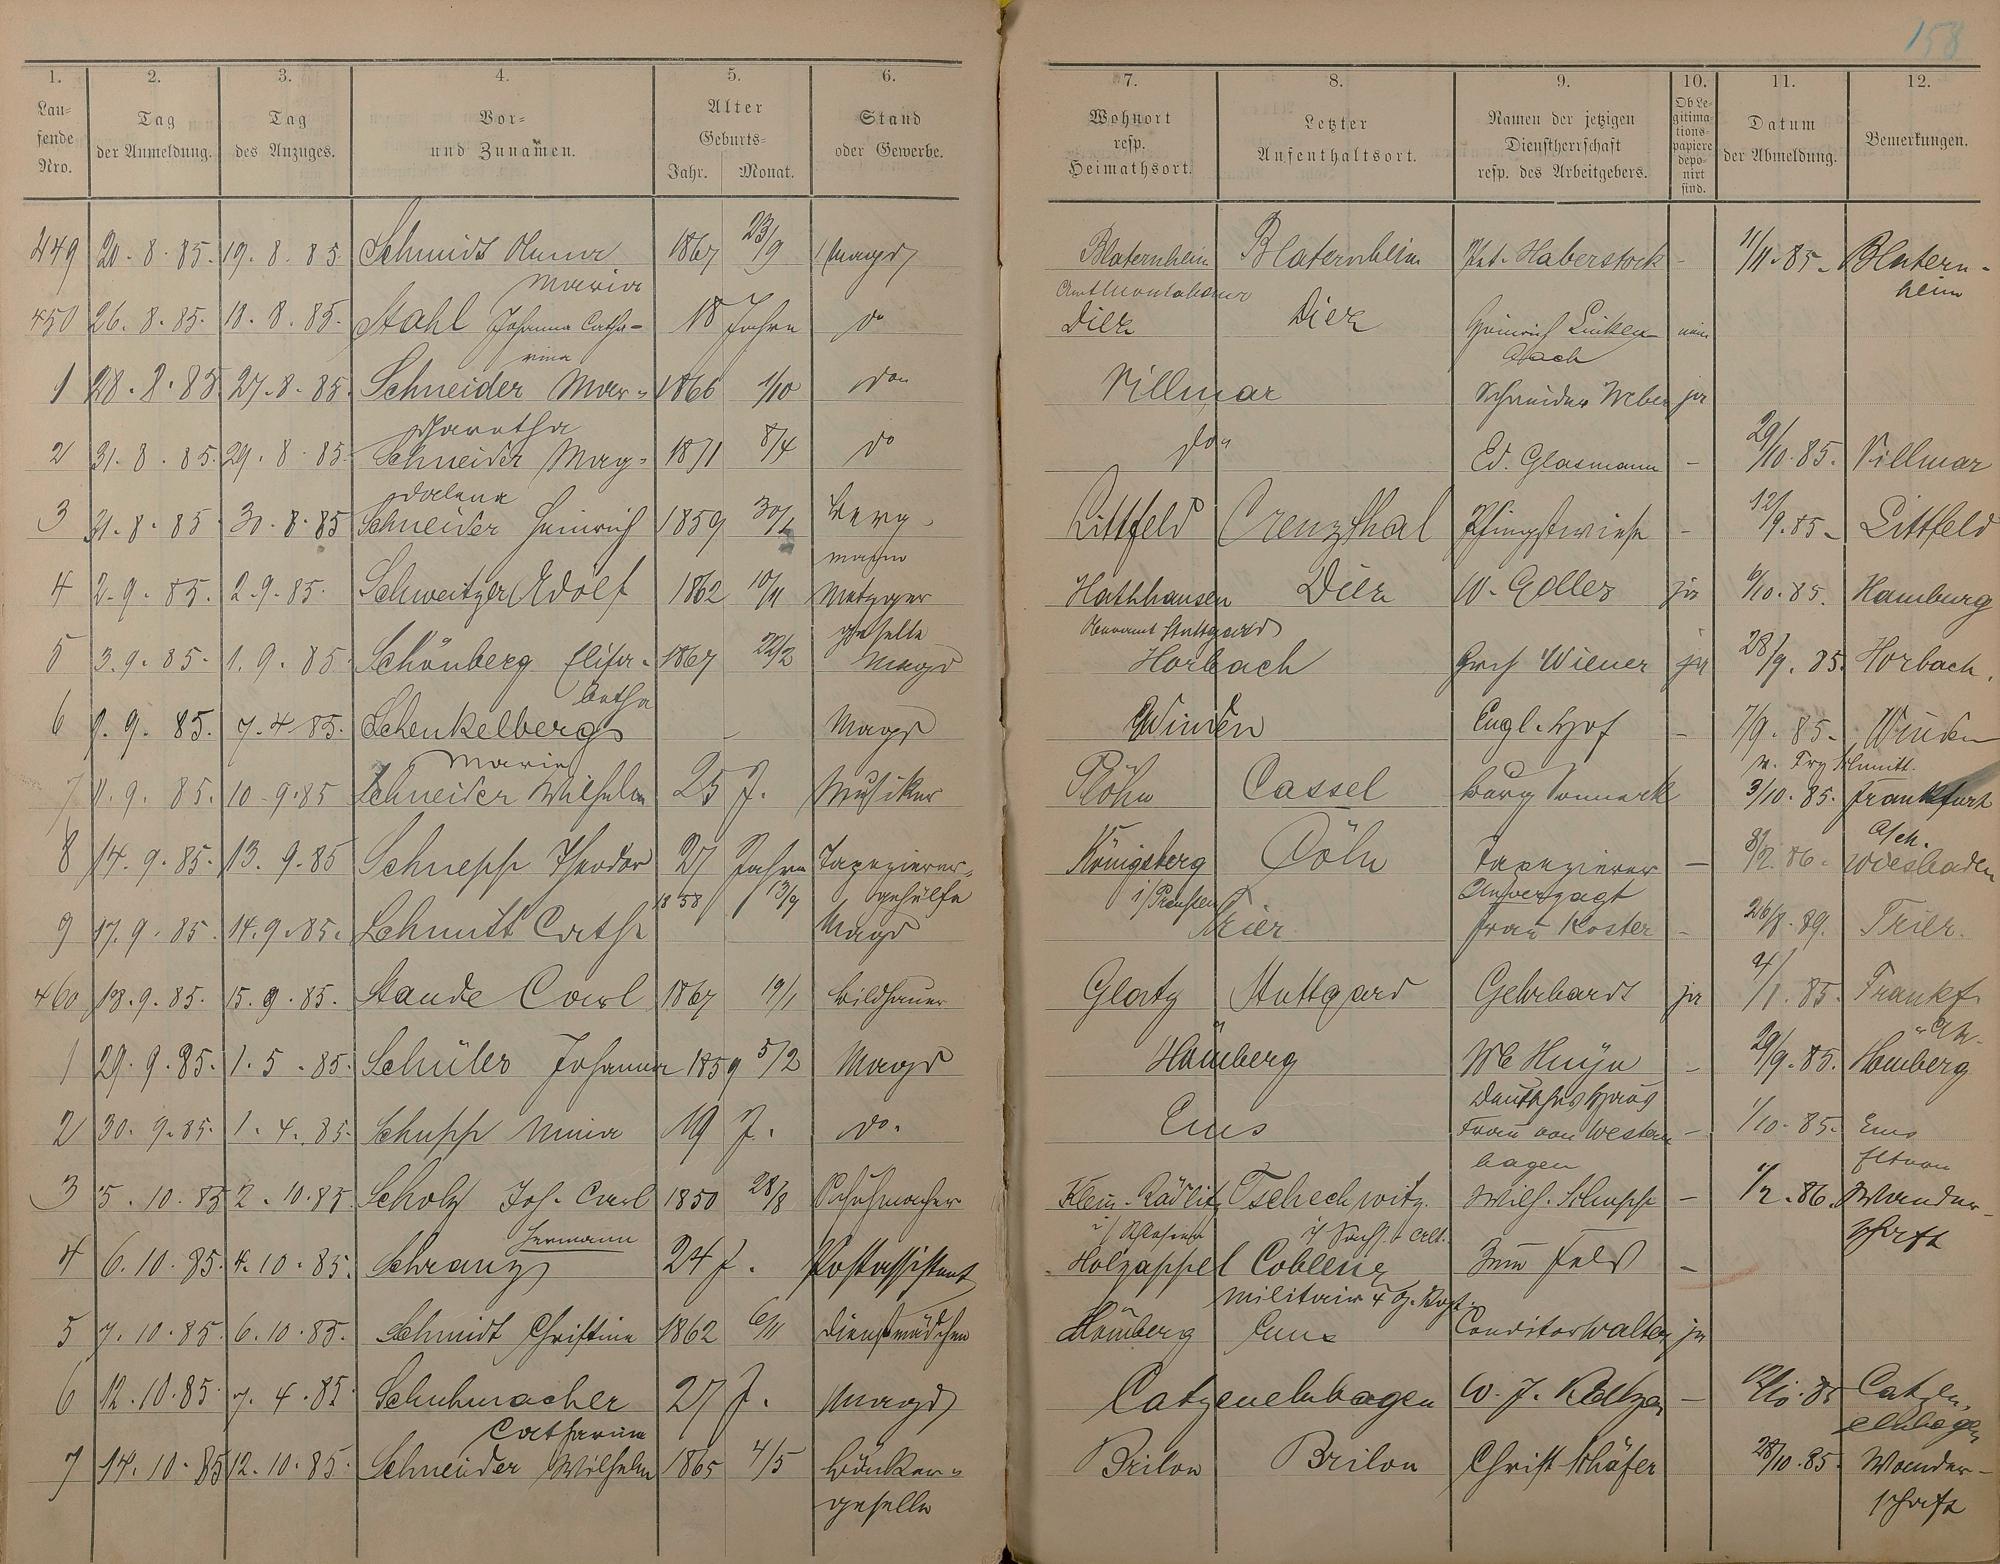 158
1. 2. 3. 4. 5. 6. 7. 8. 9. 10. 11. 12.
Lau=
fende
Nro.
Tag
der Anmeldung.
Tag
des Anzuges.
Vor=
und Zunamen.
Alter
Geburts=
Jahr. Monat.
Stand
oder Gewerbe.
Wohnort
resp.
Heimathsort.
Letzter
Aufenthaltsort.
Namen der jetzigen
Dienstherrschaft
resp. des Arbeitgebers.
Ob Le-
gitima-
tions-
papiere
depo-
nirt
sind.
Datum
der Abmeldung.
Bemerkungen.
449 20. 8. 85. 19. 8. 85 Schmidt Anna 1867 23/9 Magd Blaternheim Blaternheim Haberstock - 11/11. 85. Blatern-
Maria heim
450 26. 8. 85. 18. 8. 85. Stahl Johanna Catha- 18 Jahre do Diez Diez Heinrich Linken nein
rina bach
1 28. 8. 85 27. 8. 85. Schneider Mar- 1866 1/10 do Villmar Schneider Weber ja
garetha
2 31. 8. 85. 29. 8. 85. Schneider Mag- 1871 8/4 do do Ed. Glasmann - 29/10. 85. Villmar
dalena
3 31. 8. 85 30. 8. 85 Schneider Heinrich 1859 Berg- Littfeld Creuzthal Pfingstwiese - 12/9. 85. Littfeld
mann
4 2. 9. 85. 2. 9. 85. Schweitzer Adolf 1862 10/11 Metzger Diez ja 6/10. 85. Hamburg
geselle Oberamt Stuttgard
5 3. 9. 85. 1. 9. 85 Schönberg Elisa- 1867 22/2 Magd Horbach Wiener ja 28/9. 85. Horbach.
betha
6 9. 85. 7. 4. 85. Schenkelberg - Magd Winden Engl. Hof - 7/9. 85. Winden
Marie
7 9. 85. 10. 9. 85 Schneider Wilhelm 25 J. Musiker Cassel 3/10. 85. Frankfurt
8 14. 9. 85. 13. 9. 85 Schnepp Theodor 27 Jahre Tapezierer- Königsberg Cöln Tapezierer - 86. Wiesbaden
1858 13/9 gehülfe i/Preußen Unverzagt
9 17. 9. 85. 14. 9. 85. Schmitt Cath Magd Trier Frau Koster - 26/8. 89. Trier.
460 18. 9. 85. 15. 9. 85. Staude Carl 1867 19/1 Bildhauer Glatz Stuttgard Gehrhardt ja 85. Frankf.
a/M.
1 29. 9. 85. 1. 5. 85. Schüler Johanna 1859 5/2 Magd Homberg - 29/9. 85. Homberg
Deutsches Haus
2 30. 9. 85. 1. 4. 85. Schupp Mina 19 J. do. Ems Frau von Western- - 1/10. 85. Ems
hagen
3 5. 10. 85 2. 10. 85 Scholz Joh. Carl 1850 28/8 Schuhmacher Klein-Rädlitz Tschechwitz Wilh. Schupp - 1/2. 86. Wander-
Hermann schaft
4 6. 10. 85. 4. 10. 85. Schranz 24 J. Postassistent Holzappel Coblenz Zum Fels -
Militair
5 7. 10. 85. 6. 10. 85. Schmidt Christine 1862 6/11 Dienstmädchen Homberg Ems Conditor Walter ja
6 12. 10. 85. 7. 4. 85. Schuhmacher 27 J. Magd Catzenelnbogen - 85 Catzen-
Catharina elnbogen
7 14. 10. 85 12. 10. 85. Schneider Wilhelm 1865 4/5 Brilon Brilon Christ. Schäfer 28/10. 85. Wander-
geselle schaft